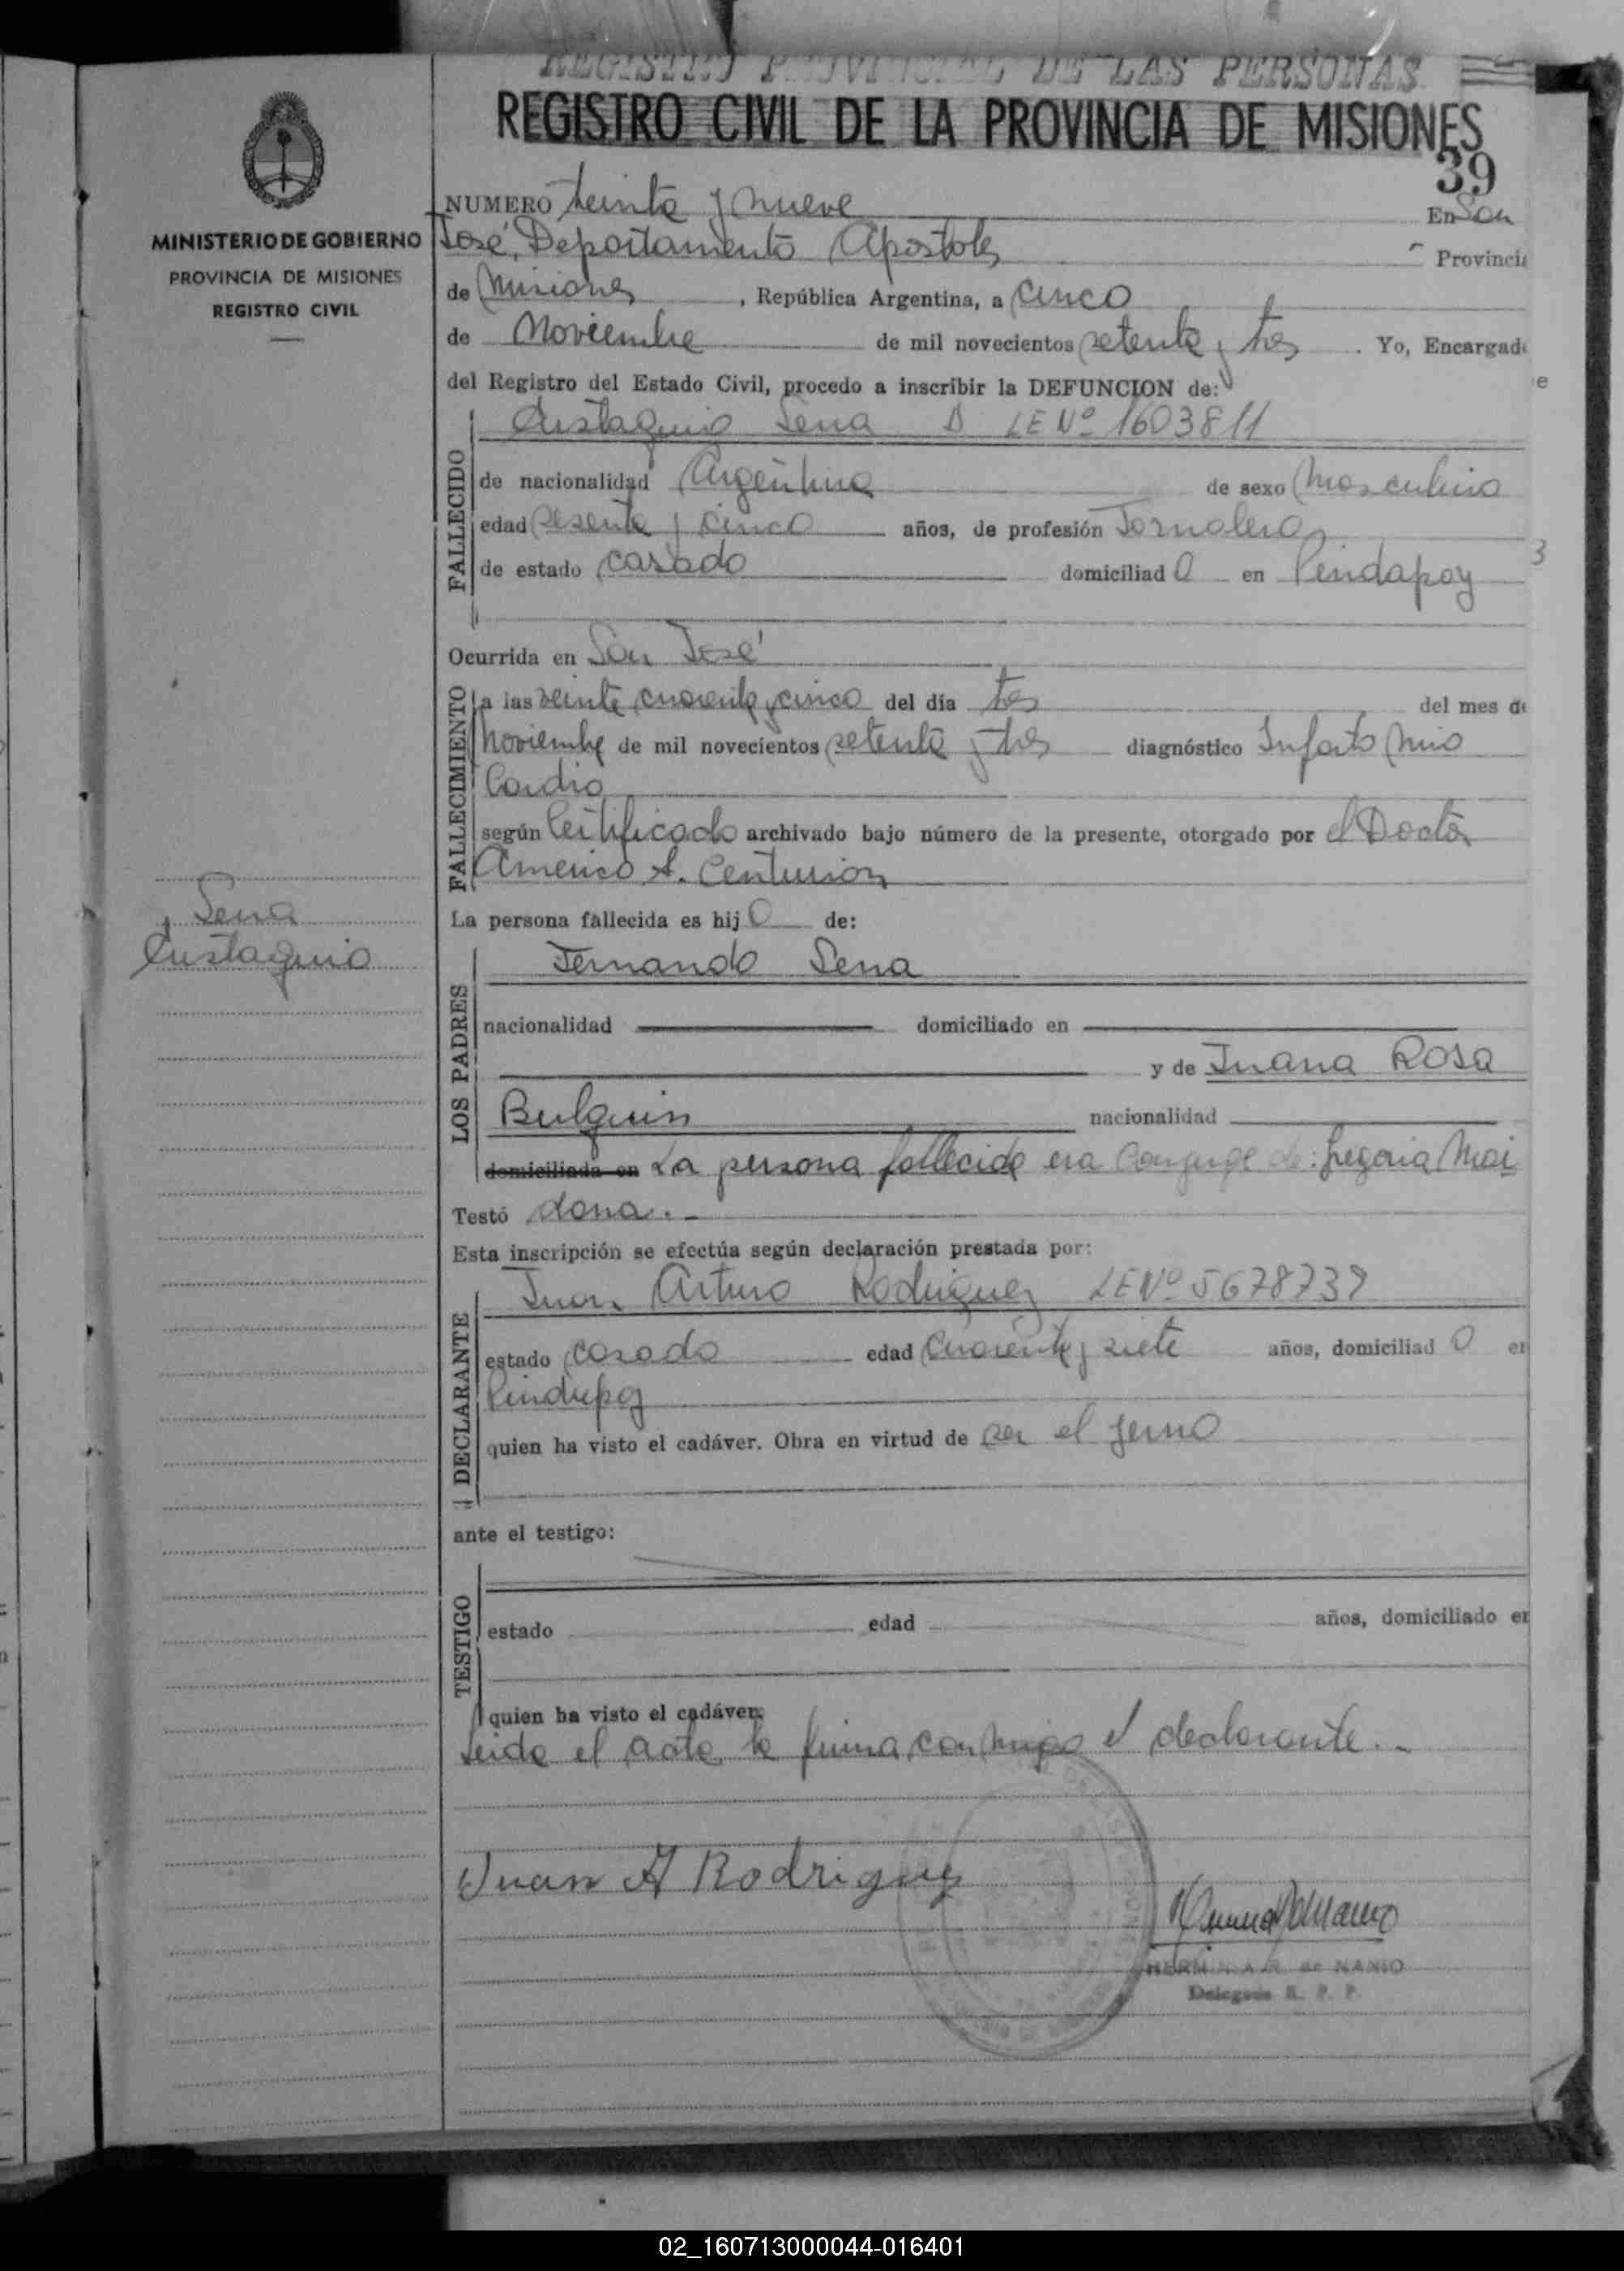 REGISTRO PROVINCIAL DE LAS PERSONAS
REGISTRO CIVIL DE LA PROVINCIA DE MISIONES
39
MINISTERIO DE GOBIERNO
PROVINCIA DE MISIONES
REGISTRO CIVIL
NUMERO treinta y nueve En San
José, Departamento Apostoles Provincia
de Misiones, República Argentina, a cinco
de Noviembre de mil novecientos setenta y tres. Yo, Encargado
del Registro del Estado Civil, procedo a inscribir la DEFUNCION de:
FALLECIDO
Eustaquio Sena D LE Nº 1603811
de nacionalidad Argentina de sexo Masculino
edad sesenta y cinco años, de profesión Jornalero
de estado casado domiciliado en Pindapoy
Ocurrida en San José
FALLECIMIENTO
a las veinte cuarenta y cinco del día tres del mes de
Noviembre de mil novecientos setenta y tres diagnóstico Infarto Mio
Cardio
según Certificado archivado bajo número de la presente, otorgado por el Doctor
Americo A. Centurion
Sena
Eustaquio
La persona fallecida es hijo de:
LOS PADRES
Fernando Sena
nacionalidad domiciliado en
y de Juana Rosa
Bulquin nacionalidad
domiciliada en La persona fallecida era Conyuge de: Gregoria Mai
Testó dana.-
Esta inscripción se efectúa según declaración prestada por:
DECLARANTE
Juan Arturo Rodriguez LE Nº 5678739
estado casado edad Cuarenta y siete años, domiciliado en
Pindapoy
quien ha visto el cadáver. Obra en virtud de ser el yerno
ante el testigo:
TESTIGO
estado edad años, domiciliado en
quien ha visto el cadáver.
Leida el acta, la firma conmigo el declarante.-
Juan A Rodriguez
HERMINIA R. de NANIO
Delegada R. P. P.
02_160713000044-016401